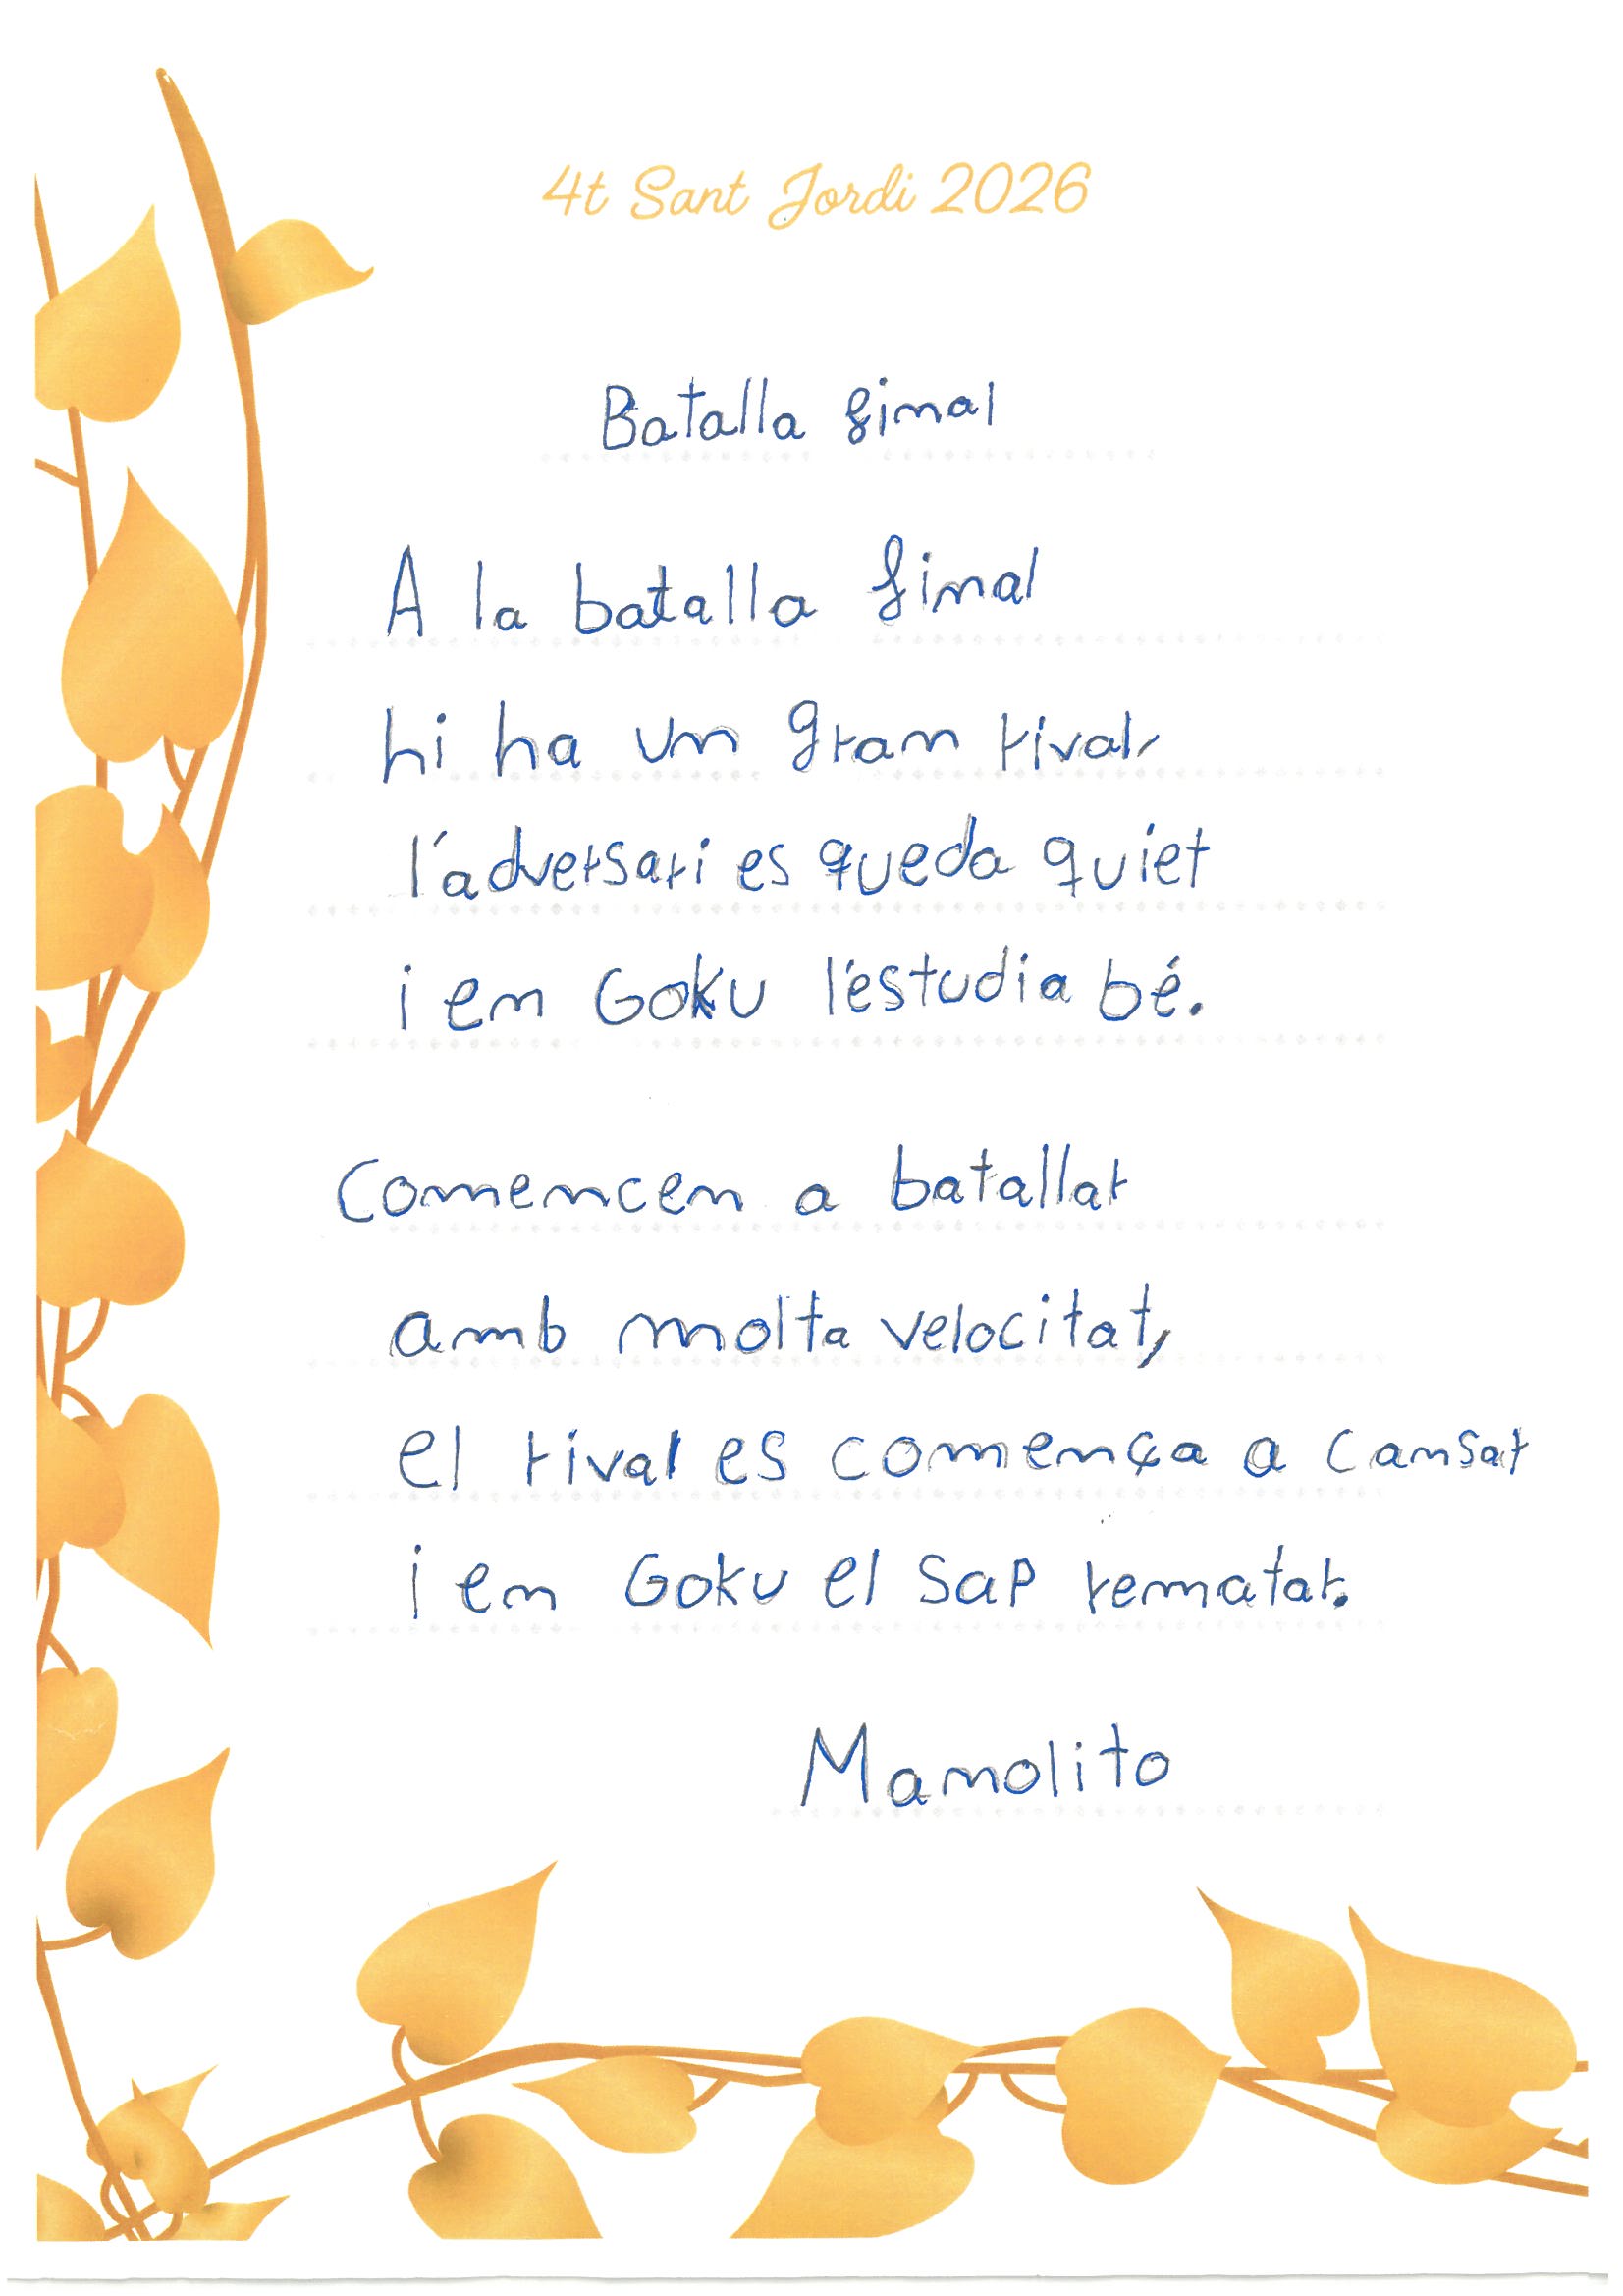 4t Sant Jordi 2026
Batalla final
A la batalla final
hi ha un gran rival,
l'adversari es queda quiet
i en Goku l'estudia bé.
Comencen a batallar
amb molta velocitat,
el rival es comença a cansar
i en Goku el sap rematar.
Manolito